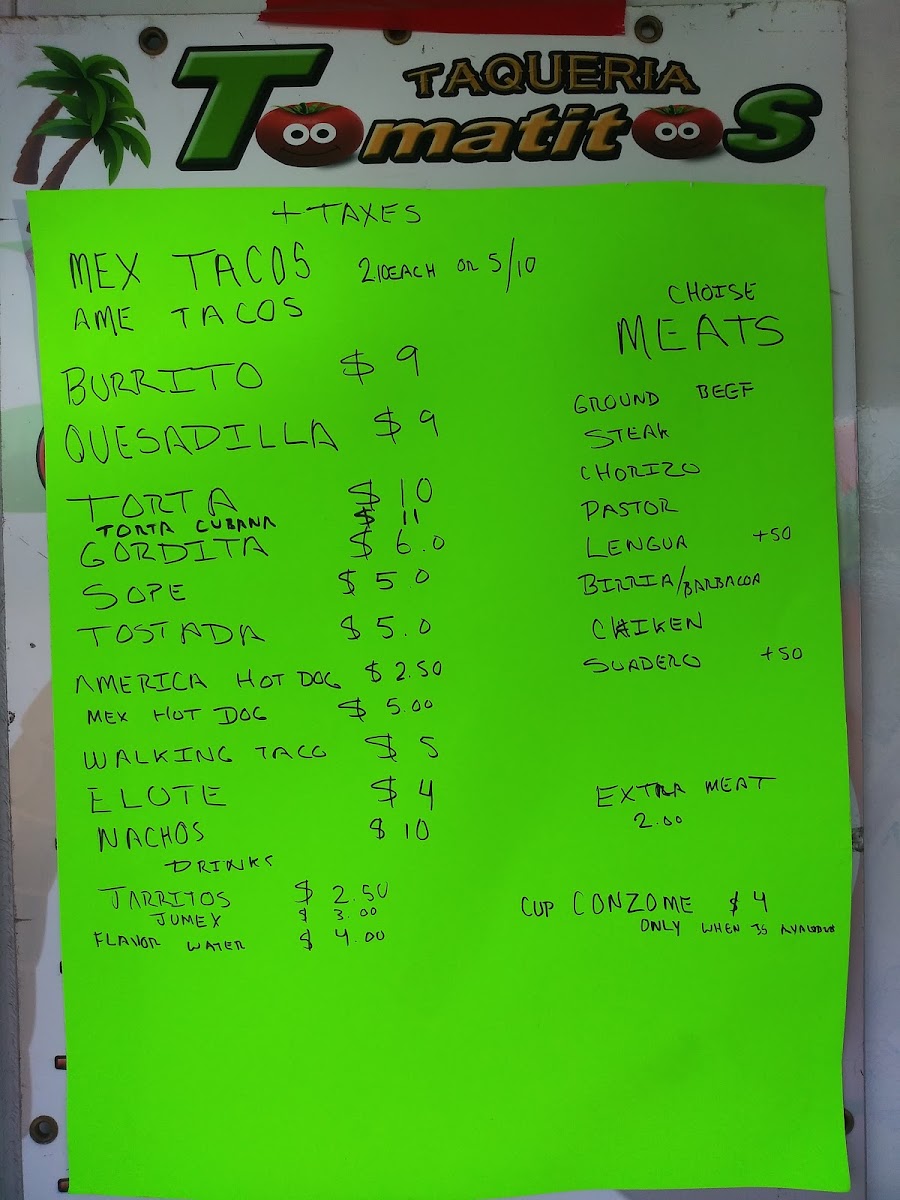 TAQUERIA
TomatitoS
+ TAXES
MEX TACOS 2.10 EACH OR 5/10
AME TACOS
BURRITO $ 9
QUESADILLA $ 9
TORTA $ 10
TORTA CUBANA $ 11
GORDITA $ 6.0
SOPE $ 5.0
TOSTADA $ 5.0
AMERICA HOT DOG $ 2.50
MEX HOT DOG $ 5.00
WALKING TACO $ 5
ELOTE $ 4
NACHOS $ 10
DRINKS
JARRITOS $ 2.50
JUMEX $ 3.00
FLAVOR WATER $ 4.00
CHOISE
MEATS
GROUND BEEF
STEAK
CHORIZO
PASTOR
LENGUA +50
BIRRIA/BARBACOA
CHIKEN
SUADERO +50
EXTRA MEAT
2.00
CUP CONZOME $ 4
ONLY WHEN IS